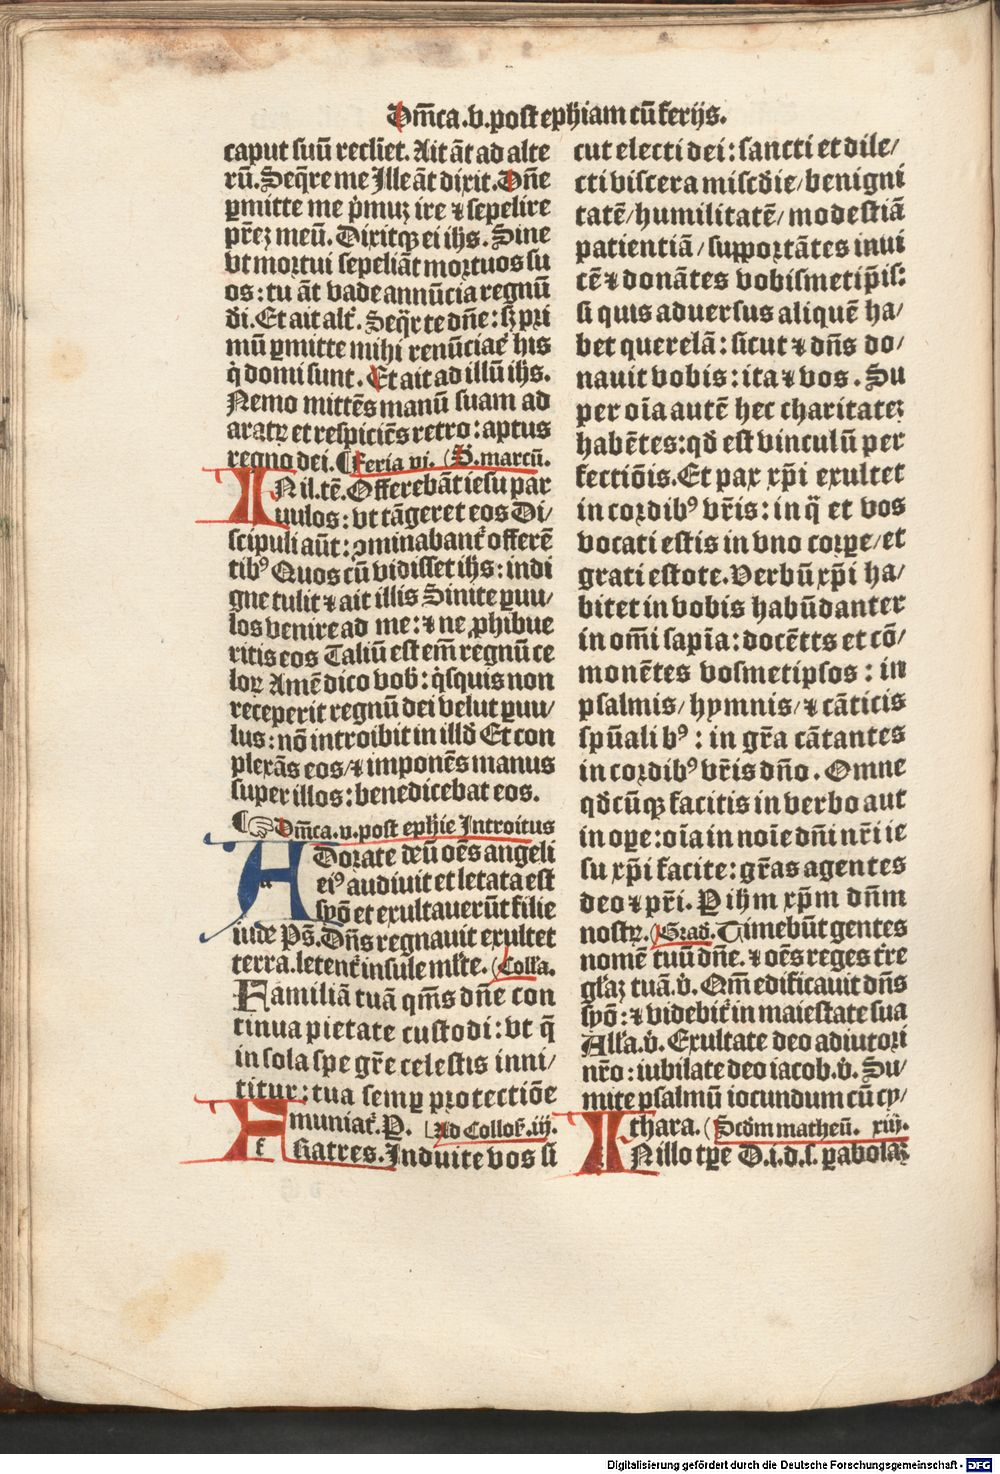 Dm̄ca.v.post ephiam cū ferijs.
caput suū recliēt. Ait āt ad alte
rū. Seq̄re me Ille āt dixit. Dn̄e
ꝑmitte me p̄muꝫ ire ⁊ sepelire
pr̄eꝫ meū. Dixitqꝫ ei ihs. Sine
vt mortui sepeliāt mortuos su
os: tu āt vade annūcia regnū
dī. Et ait alt̄. Seq̄r te dn̄e: sꝫ pri
mū ꝑmitte mihi renūciaē his
q̇ domi sunt. Et ait ad illū ihs.
Nemo mittēs manū suam ad
aratꝝ et respiciēs retro: aptus
regno dei. ¶ Feria vi. (S̄. marcū.
IN il. tē. Offerebāt iesu par
uulos: vt tāgeret eos Di/
scipuli aūt: ꝯminabant̄ offerē
tibꝰ Quos cū vidisset ihs: indi
gne tulit ⁊ ait illis Sinite ꝑuu/
los venire ad me: ⁊ ne ꝓhibue
ritis eos Taliū est em̄ regnū ce
loꝝ Amē dico vob̄: q̇squis non
receperit regnū dei velut ꝑuu/
lus: nō introibit in illd̄ Et con
plexās eos/ ⁊ imponēs manus
super illos: benedicebat eos.
¶ ☞ Dm̄ca.v.post ephie Introitus
ADorate deū oēs angeli
eiꝰ audiuit et letata est
syō et exultauerūt filie
iude Ps̄. Dn̄s regnauit exultet
terra. letent̄ insule ml̄te. (Coll̄a.
Familiā tuā qm̄s dn̄e con
tinua pietate custodi: vt q̄
in sola spe gr̄e celestis inni/
titur: tua semꝑ protectiōe
muniat̄. P. Ad Colloẜ. iij.
FRatres. Induite vos si
cut electi dei: sancti et dile/
cti viscera misc̄die/ benigni
tatē/ humilitatē/ modestiā
patientiā/ supportātes inui
cē ⁊ donātes vobismetip̄is:
si quis aduersus aliquē ha/
bet querelā: sicut ⁊ dn̄s do/
nauit vobis: ita ⁊ vos. Su
per oīa autē hec charitateꝫ
habētes: qd̄ est vinculū per
fectiōis. Et pax xp̄i exultet
in cordibꝰ vr̄is: in q̄ et vos
vocati estis in vno corꝑe/ et
grati estote. Verbū xp̄i ha/
bitet in vobis habūdanter
in om̄i sapīa: docētts et cō/
monētes vosmetipsos: in
psalmis/ hymnis/ ⁊ cāticis
spūalibꝰ: in gr̄a cātantes
in cordibꝰ vr̄is dn̄o. Omne
qd̄cūqꝫ facitis in verbo aut
in oꝑe: oīa in noīe dn̄i nr̄i ie
su xp̄i facite: gr̄as agentes
deo ⁊ pr̄i. P ihm̄ xp̄m dn̄m
nostꝝ. (Grad̄. Timebūt gentes
nomē tuū dn̄e. ⁊ oēs reges tr̄e
gl̄aꝫ tuā. v̄. Qm̄ edificauit dn̄s
syō: ⁊ videbit̄ in maiestate sua
All̄a. v̄. Exultate deo adiutori
nr̄o: iubilate deo iacob. v̄. Su/
mite psalmū iocundum cū cy/
thara. (Scd̄m matheū. xiij.
IN illo tꝑe D. i. d. s. ꝑabolaꝫ
Digitalisierung gefördert durch die Deutsche Forschungsgemeinschaft - DFG